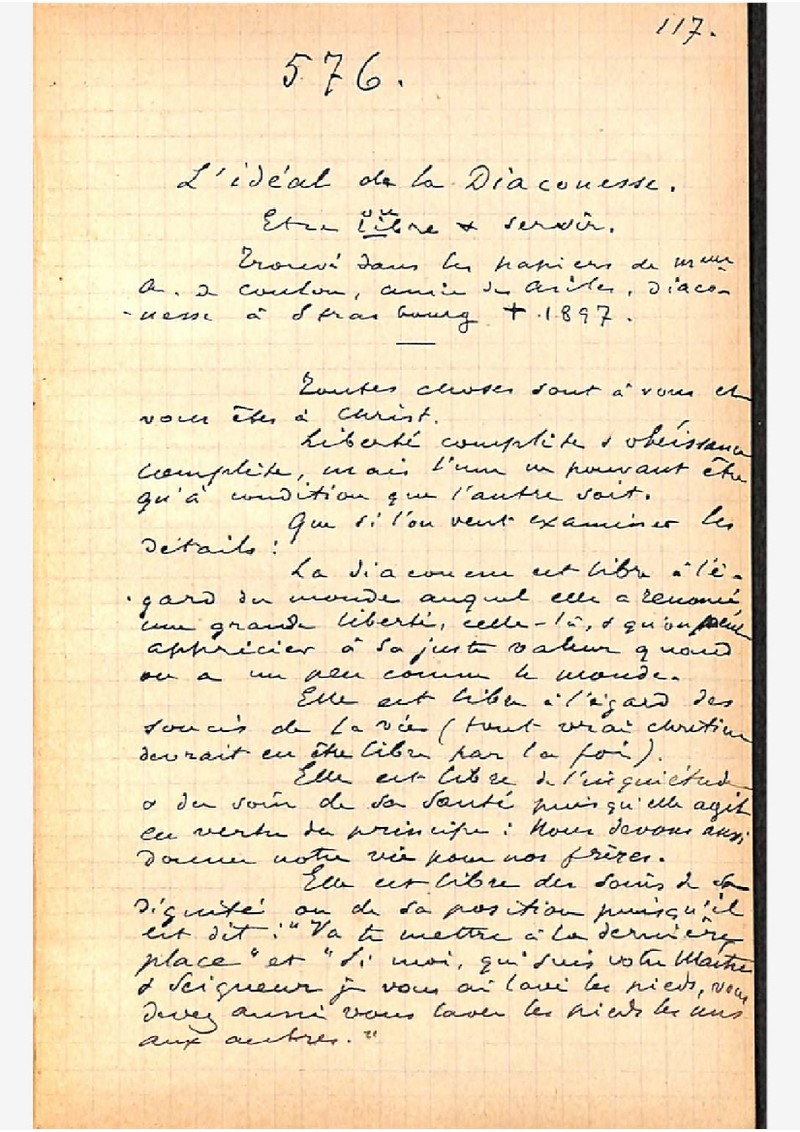 117.
576.
L'idéal de la Diaconesse.
Etre libre & servir.
Trouvé dans les papiers de
A. de Coulon, amie des Asiles, diaco-
-nesse à Strasbourg + 1897.
Toutes choses sont à vous et
vous êtes à Christ.
Liberté complète & obéissance
complète, mais l'une ne pouvant être
qu'à condition que l'autre soit.
Que si l'on veut examiner les
détails :
La diaconesse est libre à l'é-
gard du monde auquel elle a renoncé
une grande liberté, celle-là, & qu'on peut
apprécier à sa juste valeur quand
on a un peu connu le monde.
Elle est libre à l'égard des
soucis de la vie (tout vrai chrétien
devrait en être libre par la foi).
Elle est libre de l'inquiétude
& du soin de sa santé puisqu'elle agit
en vertu du principe : Nous devons aussi
donner notre vie pour nos frères.
Elle est libre des soucis de sa
dignité ou de sa position puisqu'il
est dit : "Va te mettre à la dernière
place" et "Si moi, qui suis votre Maître
& Seigneur je vous ai lavé les pieds, vous
devez aussi vous laver les pieds les uns
aux autres."